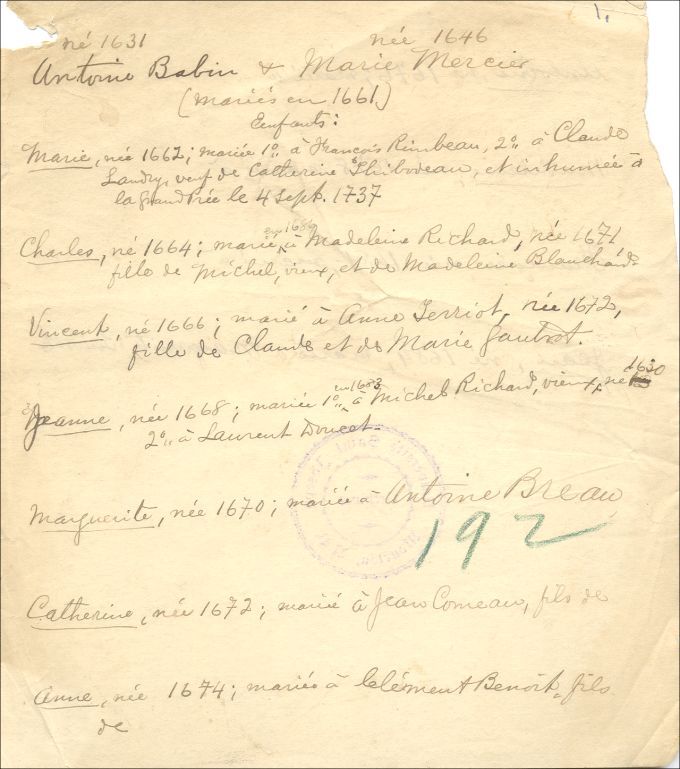 1.
né 1631 née 1646
Antoine Babin & Marie Mercier
(mariés en 1661)
Eenfants:
Marie, née 1662; mariée 1º à François Rimbeau, 2º à Claude
Landry, veuf de Catherine Thibodeau, et inhumée à
la Grand Prée le 4 Sept. 1737
Charles, né 1664; marié à Madeleine Richard, née 1671
fille de Michel, vieux, et de Madeleine Blanchard
Vincent, né 1666; marié à Anne Terriot, née 1672,
fille de Claude et de Marie Gautrot.
Jeanne, née 1668; mariée 1º en 1683 à Michel Richard, vieux, né 1630
2º à Laurent Doucet
Marguerite, née 1670; mariée à Antoine Breau
192
Catherine, née 1672; marié à Jean Comeau, fils de
Anne, née 1674; mariés à Clément Benoit, fils
de